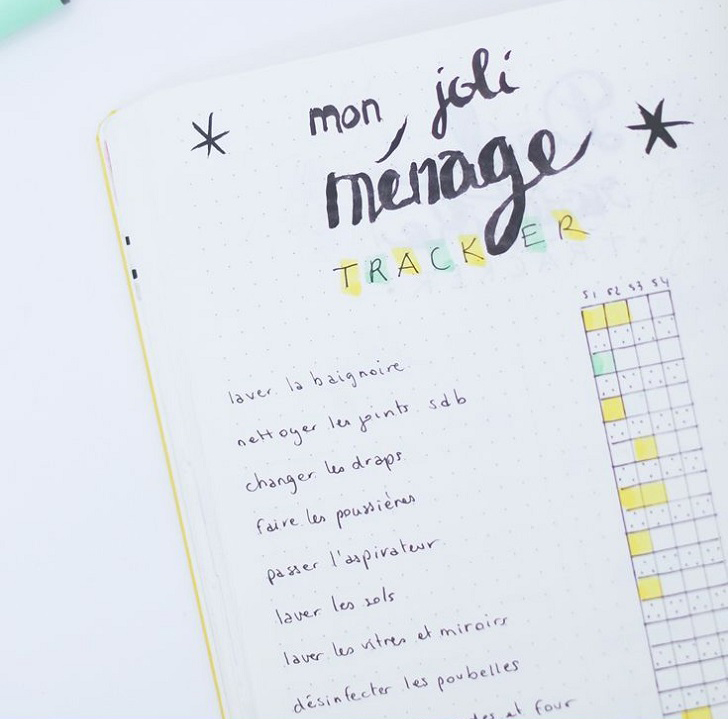 mon joli
ménage
TRACKER
S1 S2 S3 S4
laver la baignoire
nettoyer les joints sdb
changer les draps
faire les poussières
passer l'aspirateur
laver les sols
laver les vitres et miroirs
désinfecter les poubelles
et four